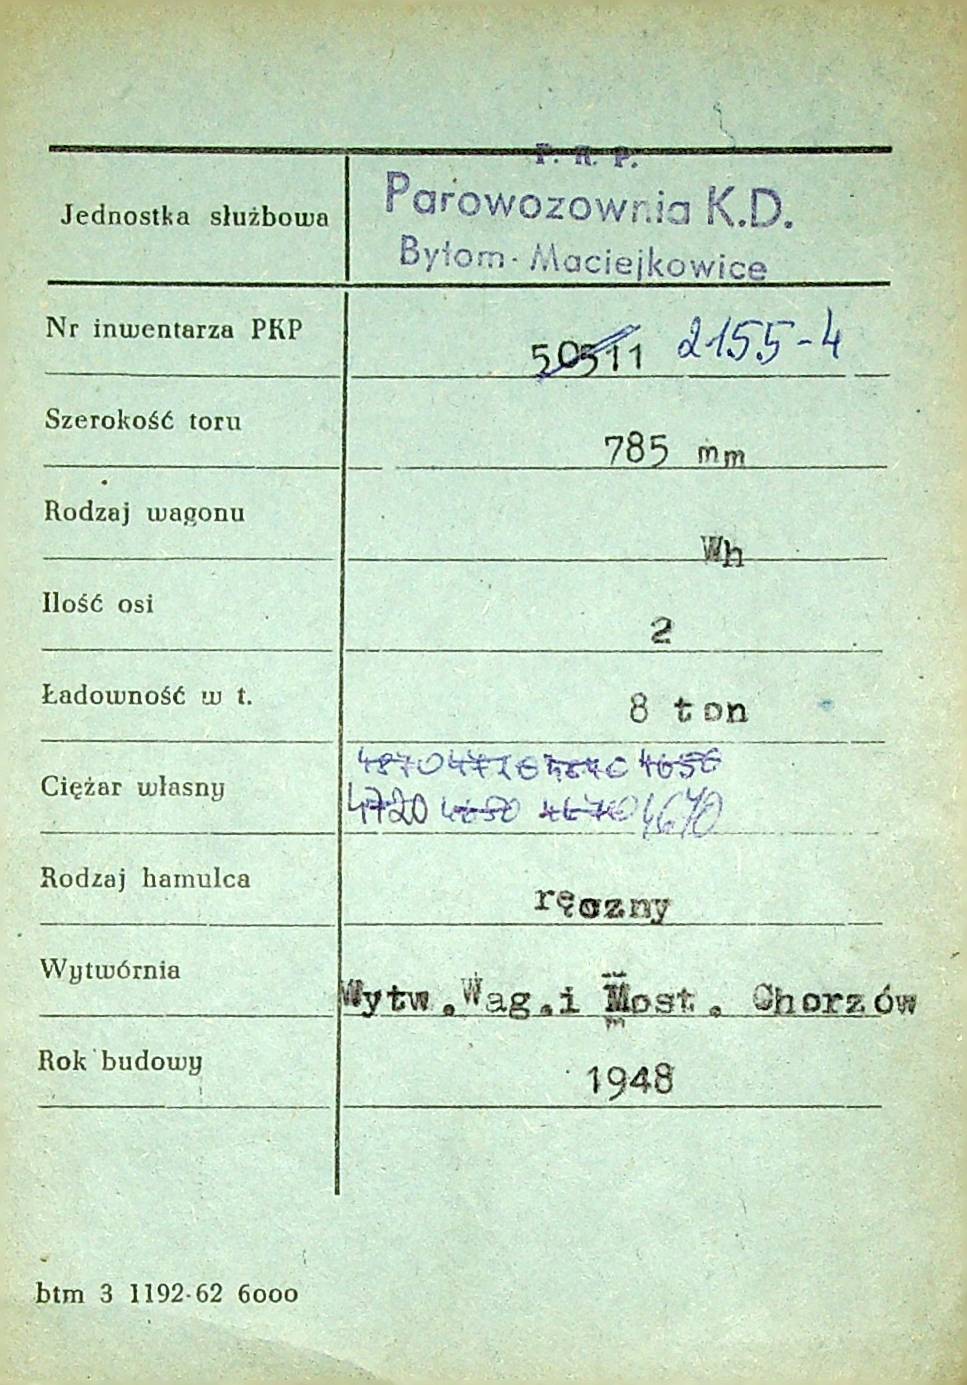 P. K. P.
Parowozownia K.D.
Bytom-Maciejkowice
Jednostka służbowa
Nr inwentarza PKP 50511 2155-4
Szerokość toru 785 mm
Rodzaj wagonu Wh
Ilość osi 2
Ładowność w t. 8 ton
Ciężar własny 4870 4650
4720 4670
Rodzaj hamulca ręczny
Wytwórnia Wytw.Wag.i Most. Chorzów
Rok budowy 1948
btm 3 1192-62 6000